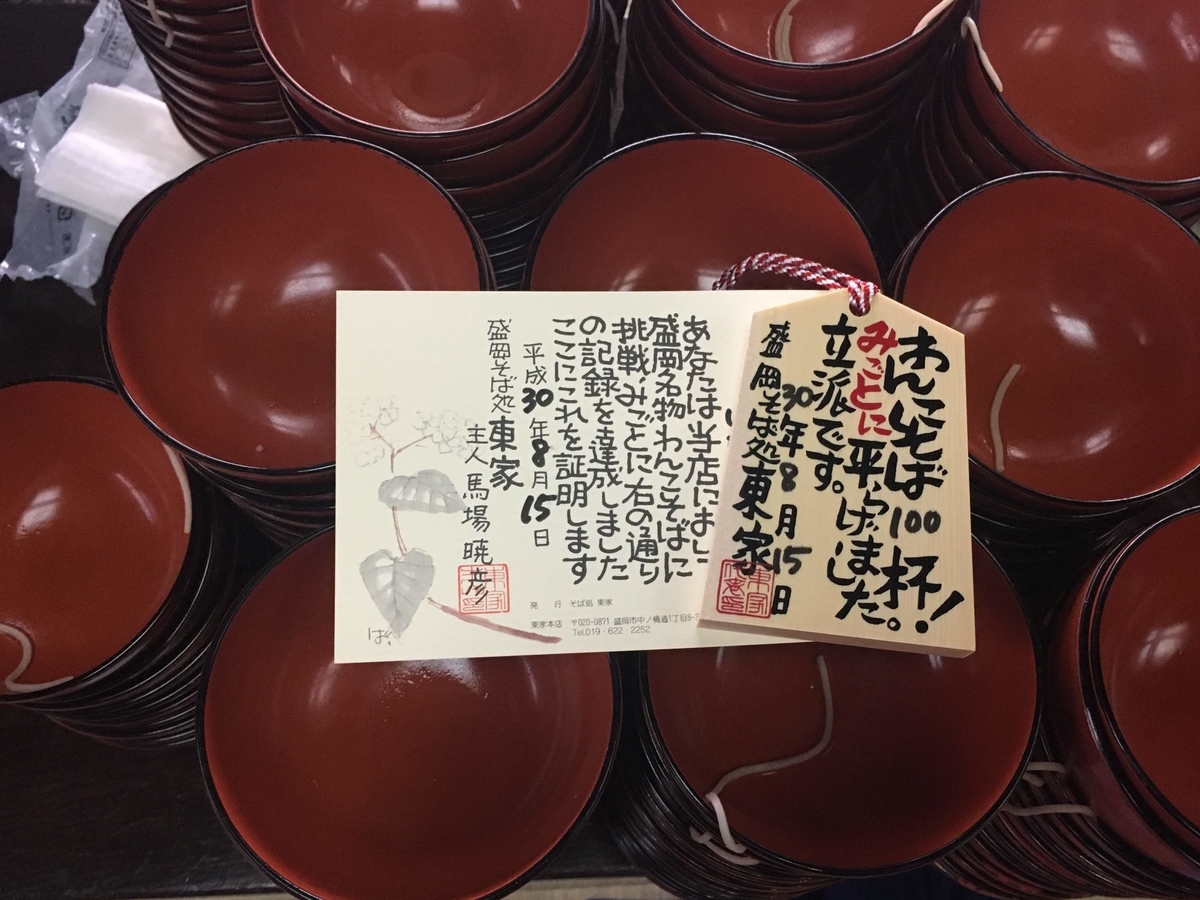 わんこそば100杯!
みごとに平らげました。
立派です。
30年8月15日
盛岡そば処東家
あなたは当店におい
盛岡名物わんこそばに
挑戦、みごとに右の通り
の記録を達成しました
ここにこれを証明します
平成30年8月15日
盛岡そば処東家
主人馬場暁彦
発 行 そば処 東家
東家本店 〒020-0871 盛岡市中ノ橋通1丁目8-
Tel.019・622・2252
ば